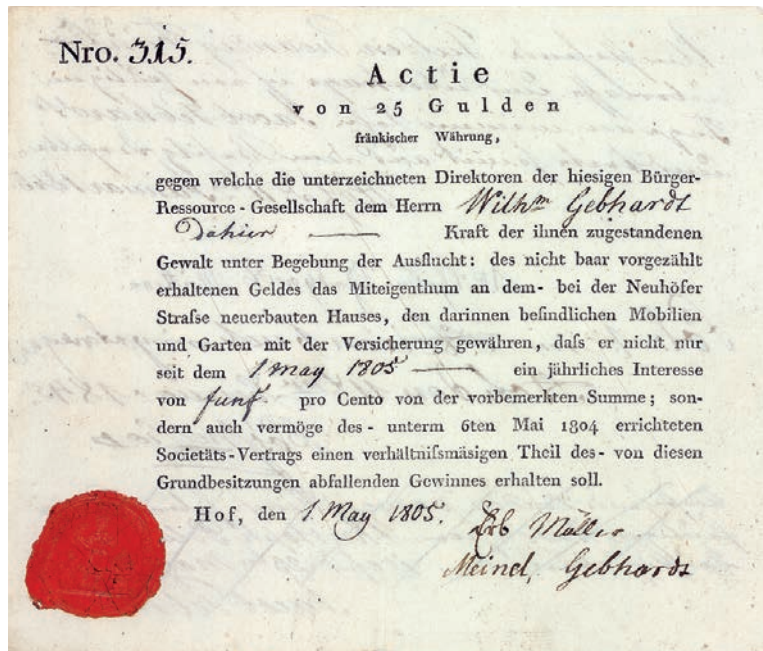 Nro. 315.
Actie
von 25 Gulden
fränkischer Währung,
gegen welche die unterzeichneten Direktoren der hiesigen Bürger-
Ressource-Gesellschaft dem Herrn Wilhm Gebhardt
Dahier Kraft der ihnen zugestandenen
Gewalt unter Begebung der Ausflucht: des nicht baar vorgezählt
erhaltenen Geldes das Miteigenthum an dem- bei der Neuhöfer
Strafse neuerbauten Hauses, den darinnen befindlichen Mobilien
und Garten mit der Versicherung gewähren, dafs er nicht nur
seit dem 1 May 1805 ein jährliches Interesse
von funf pro Cento von der vorbemerkten Summe; son-
dern auch vermöge des- unterm 6ten Mai 1804 errichteten
Societäts-Vertrags einen verhältnifsmäsigen Theil des- von diesen
Grundbesitzungen abfallenden Gewinnes erhalten soll.
Hof, den 1 May 1805.
Erb Müller
Meinel, Gebhardt